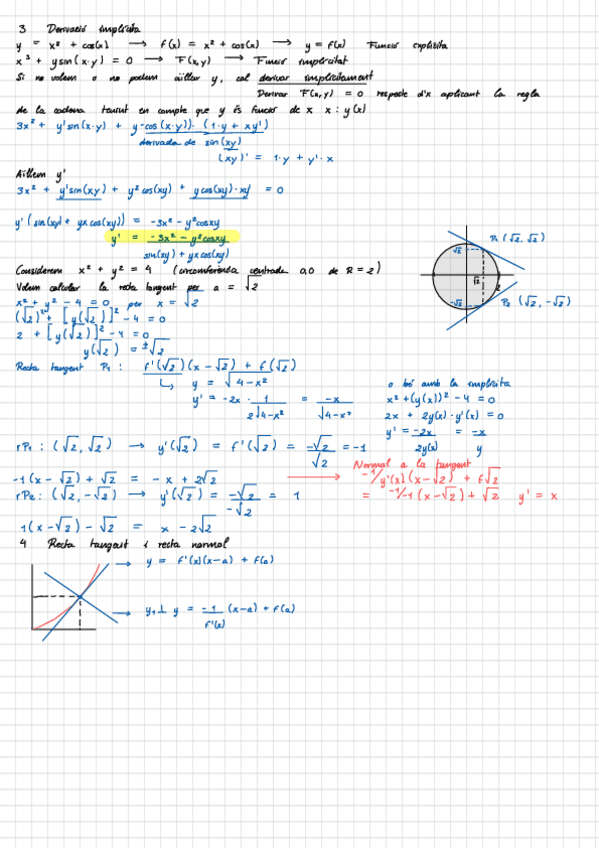 3 Derivació implícita
y = x² + cos(x) → f(x) = x² + cos(x) → y = f(x) Funció explícita
x³ + y sin(x·y) = 0 → F(x,y) → Funció implícitat
Si no volem o no podem aïllar y, cal derivar implícitament
Derivar F(x,y) = 0 respecte d'x aplicant la regla
de la cadena tenint en compte que y és funció de x x: y(x)
3x² + y'sin(x·y) + y·cos(x·y)·(1·y + xy')
derivada de sin(xy)
(xy)' = 1·y + y'·x
Aïllem y'
3x² + y'sin(xy) + y²cos(xy) + ycos(xy)·xy' = 0
y'(sin(xy) + yxcos(xy)) = -3x² - y²cosxy
y' = -3x² - y²cosxy
sin(xy) + yxcos(xy)
P₁ (√2, √2)
√2
√2
2
-√2
P₂ (√2, -√2)
Considerem x² + y² = 4 (circumferència centrada 0,0 de R = 2)
Volem calcular la recta tangent per a = √2
x² + y² - 4 = 0 per x = √2
(√2)² + [y(√2)]² - 4 = 0
2 + [y(√2)]² - 4 = 0
y(√2) = ±√2
Recta tangent P₁ : f'(√2)(x - √2) + f(√2)
y = √4-x²
y' = -2x · 1/2√4-x² = -x/√4-x²
o bé amb la implícita
x² + (y(x))² - 4 = 0
2x + 2y(x)·y'(x) = 0
y' = -2x/2y(x) = -x/y
rP₁ : (√2, √2) → y'(√2) = f'(√2) = -√2/√2 = -1
Normal a la tangent
-1(x - √2) + √2 = -x + 2√2 → -1/y'(x)(x-√2) + f√2
rP₂ : (√2, -√2) → y'(√2) = -√2/-√2 = 1
= -1/-1 (x-√2) + √2 y' = x
1(x-√2) - √2 = x - 2√2
4 Recta tangent i recta normal
→ y = f'(x)(x-a) + f(a)
→ y₁⊥ y = -1/f'(x) (x-a) + f(a)